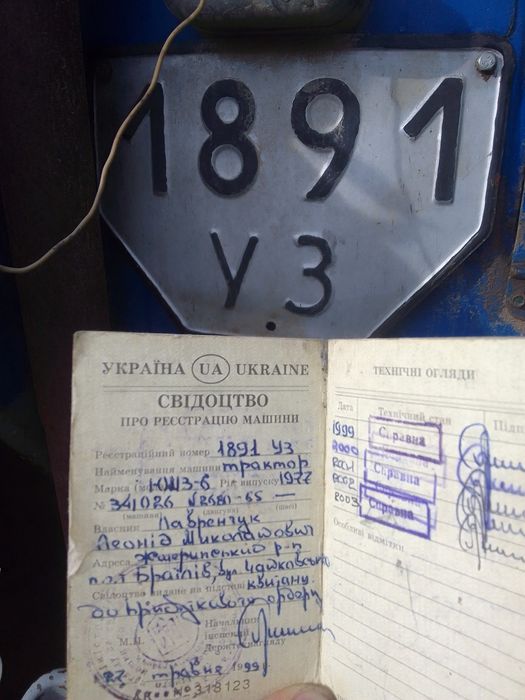 1891
УЗ
УКРАЇНА UA UKRAINE
СВІДОЦТВО
ПРО РЕЄСТРАЦІЮ МАШИНИ
Реєстраційний номер 1891 УЗ
Найменування машини трактор
Марка ЮМЗ-6 Рік випуску 1977
№ 341026
(машини) (двигуна) (шасі)
Власник Лавренчук
Леонід Миколайович
Адреса Жмеринський р-н
Браїлів, вул.
Свідоцтво видане на підставі
до
Начальник
М.П. інспекції
Держтехнагляду
травня 1999
№ 318123
ТЕХНІЧНІ ОГЛЯДИ
Дата Технічний стан
1999 Справна
2000
2001
2002
2003 Справна
Особливі відмітки